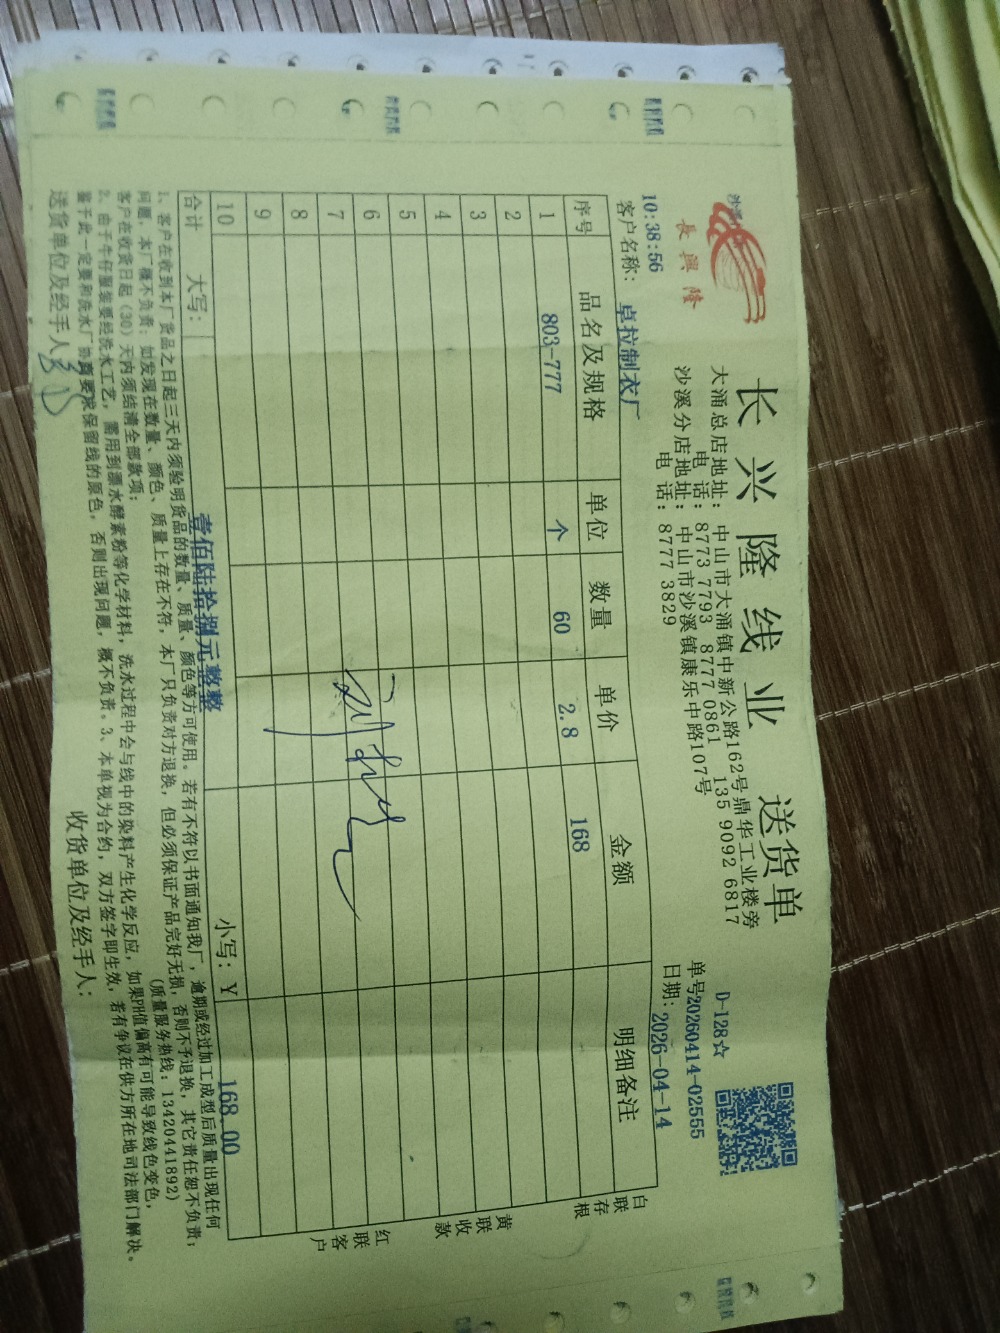 长兴隆线业 送货单
長興隆
大涌总店地址：中山市大涌镇中新公路162号鼎华工业楼旁
电 话：8773 7793 8777 0861 135 9092 6817
沙溪分店地址：中山市沙溪镇康乐中路107号
电 话：8777 3829
D-128☆
单号20260414-02555
日期：2026-04-14
10:38:56
客户名称：卓拉制衣厂
序号 品名及规格 单位 数量 单价 金额 明细备注
1 803-777 个 60 2.8 168
2
3
4
5
6
7
8
9
10
合计 大写：壹佰陆拾捌元整整 小写：￥168.00
白联存根
黄联收款
红联客户
1、客户在收到本厂货品之日起三天内须验明货品的数量、质量、颜色等方可使用。若有不符以书面通知我厂，逾期或经过加工成型后质量出现任何
问题，本厂概不负责；如发现在数量、颜色、质量上存在不符，本厂只负责对方退换，但必须保证产品完好无损，否则不予退换，其它责任恕不负责；
客户在收货日起（30）天内须结清全部款项； (质量服务热线：13420441892)
2、由于牛仔服装要经洗水工艺，需用到漂水酵素粉等化学材料，洗水过程中会与线中的染料产生化学反应，如果PH值偏高有可能导致线色变色，
鉴于此一定要和洗水厂协商要求保留线的原色，否则出现问题，概不负责。3、本单视为合约，双方签字即生效，若有争议在供方所在地司法部门解决。
送货单位及经手人： 收货单位及经手人：